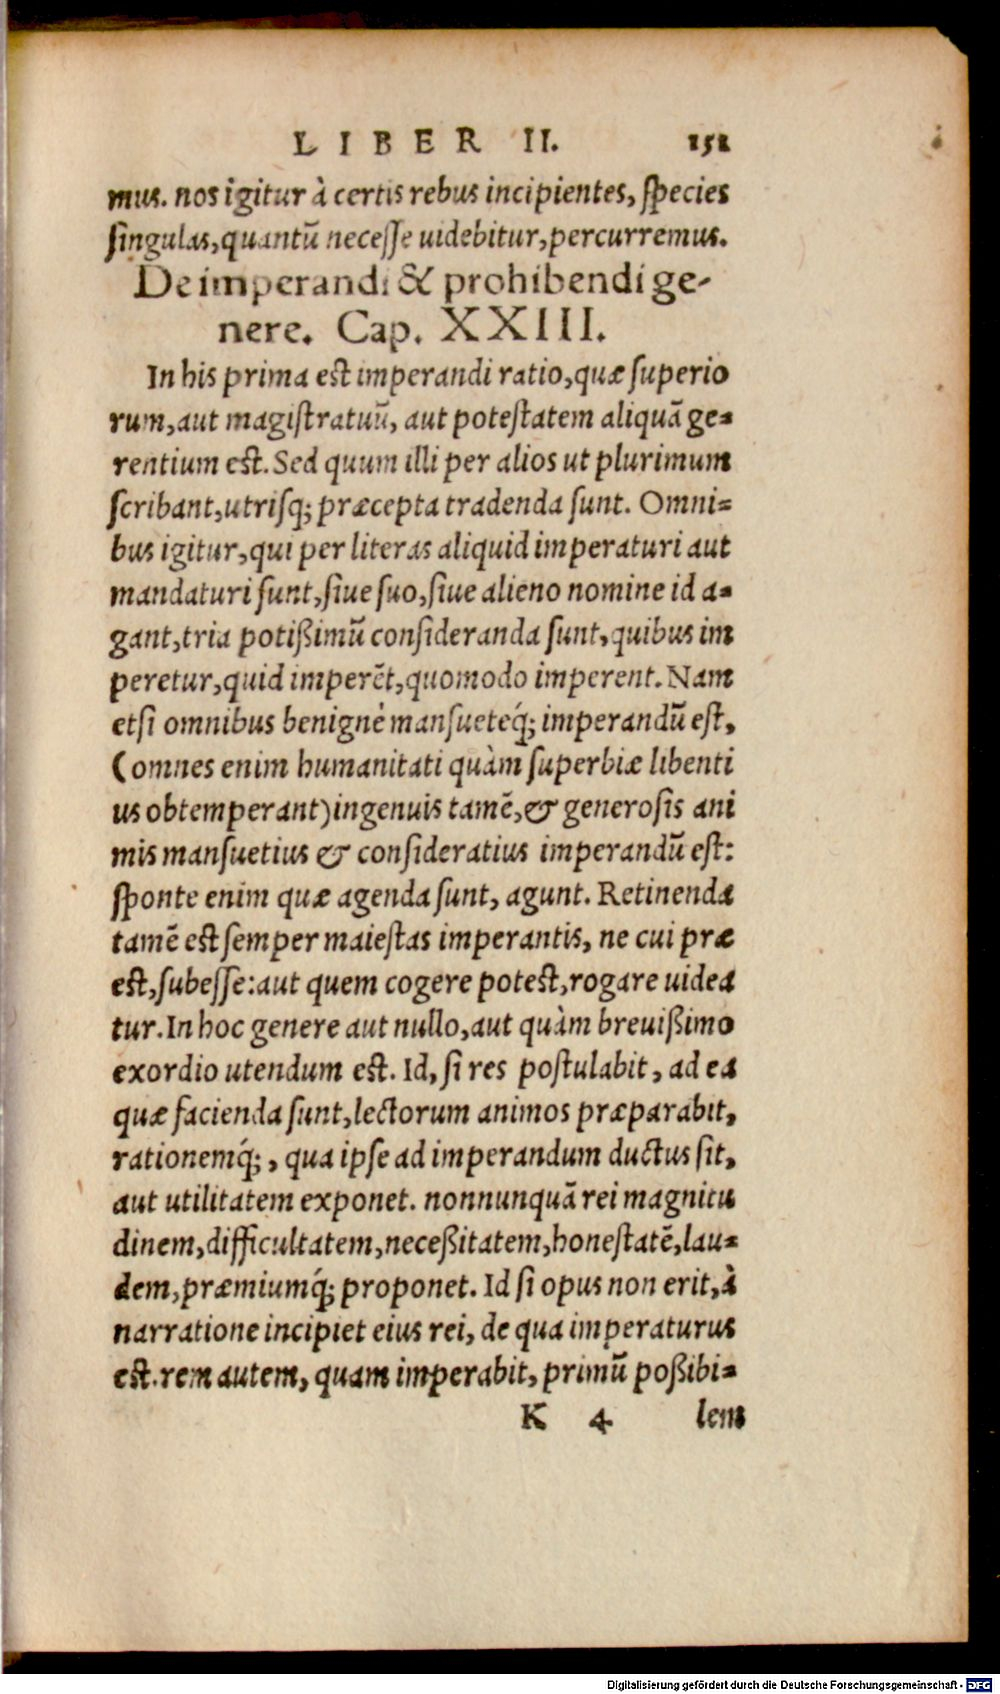 LIBER II. 151
mus. nos igitur à certis rebus incipientes, species
singulas, quantũ necesse uidebitur, percurremus.
De imperandi & prohibendi ge-
nere. Cap. XXIII.
In his prima est imperandi ratio, quæ superio
rum, aut magistratuũ, aut potestatem aliquã ge-
rentium est. Sed quum illi per alios ut plurimum
scribant, utrisq; præcepta tradenda sunt. Omni-
bus igitur, qui per literas aliquid imperaturi aut
mandaturi sunt, siue suo, siue alieno nomine id a-
gant, tria potißimũ consideranda sunt, quibus im
peretur, quid imperẽt, quomodo imperent. Nam
etsi omnibus benignè mansueteq́; imperandũ est,
(omnes enim humanitati quàm superbiæ libenti
us obtemperant) ingenuis tamẽ, & generosis ani
mis mansuetius & consideratius imperandũ est:
sponte enim quæ agenda sunt, agunt. Retinenda
tamẽ est semper maiestas imperantis, ne cui præ
est, subesse: aut quem cogere potest, rogare uidea
tur. In hoc genere aut nullo, aut quàm breuißimo
exordio utendum est. Id, si res postulabit, ad ea
quæ facienda sunt, lectorum animos præparabit,
rationemq́;, qua ipse ad imperandum ductus sit,
aut utilitatem exponet. nonnunquã rei magnitu
dinem, difficultatem, neceßitatem, honestatẽ, lau-
dem, præmiumq́; proponet. Id si opus non erit, à
narratione incipiet eius rei, de qua imperaturus
est. rem autem, quam imperabit, primũ poßibi-
K 4 lem
Digitalisierung gefördert durch die Deutsche Forschungsgemeinschaft - DFG